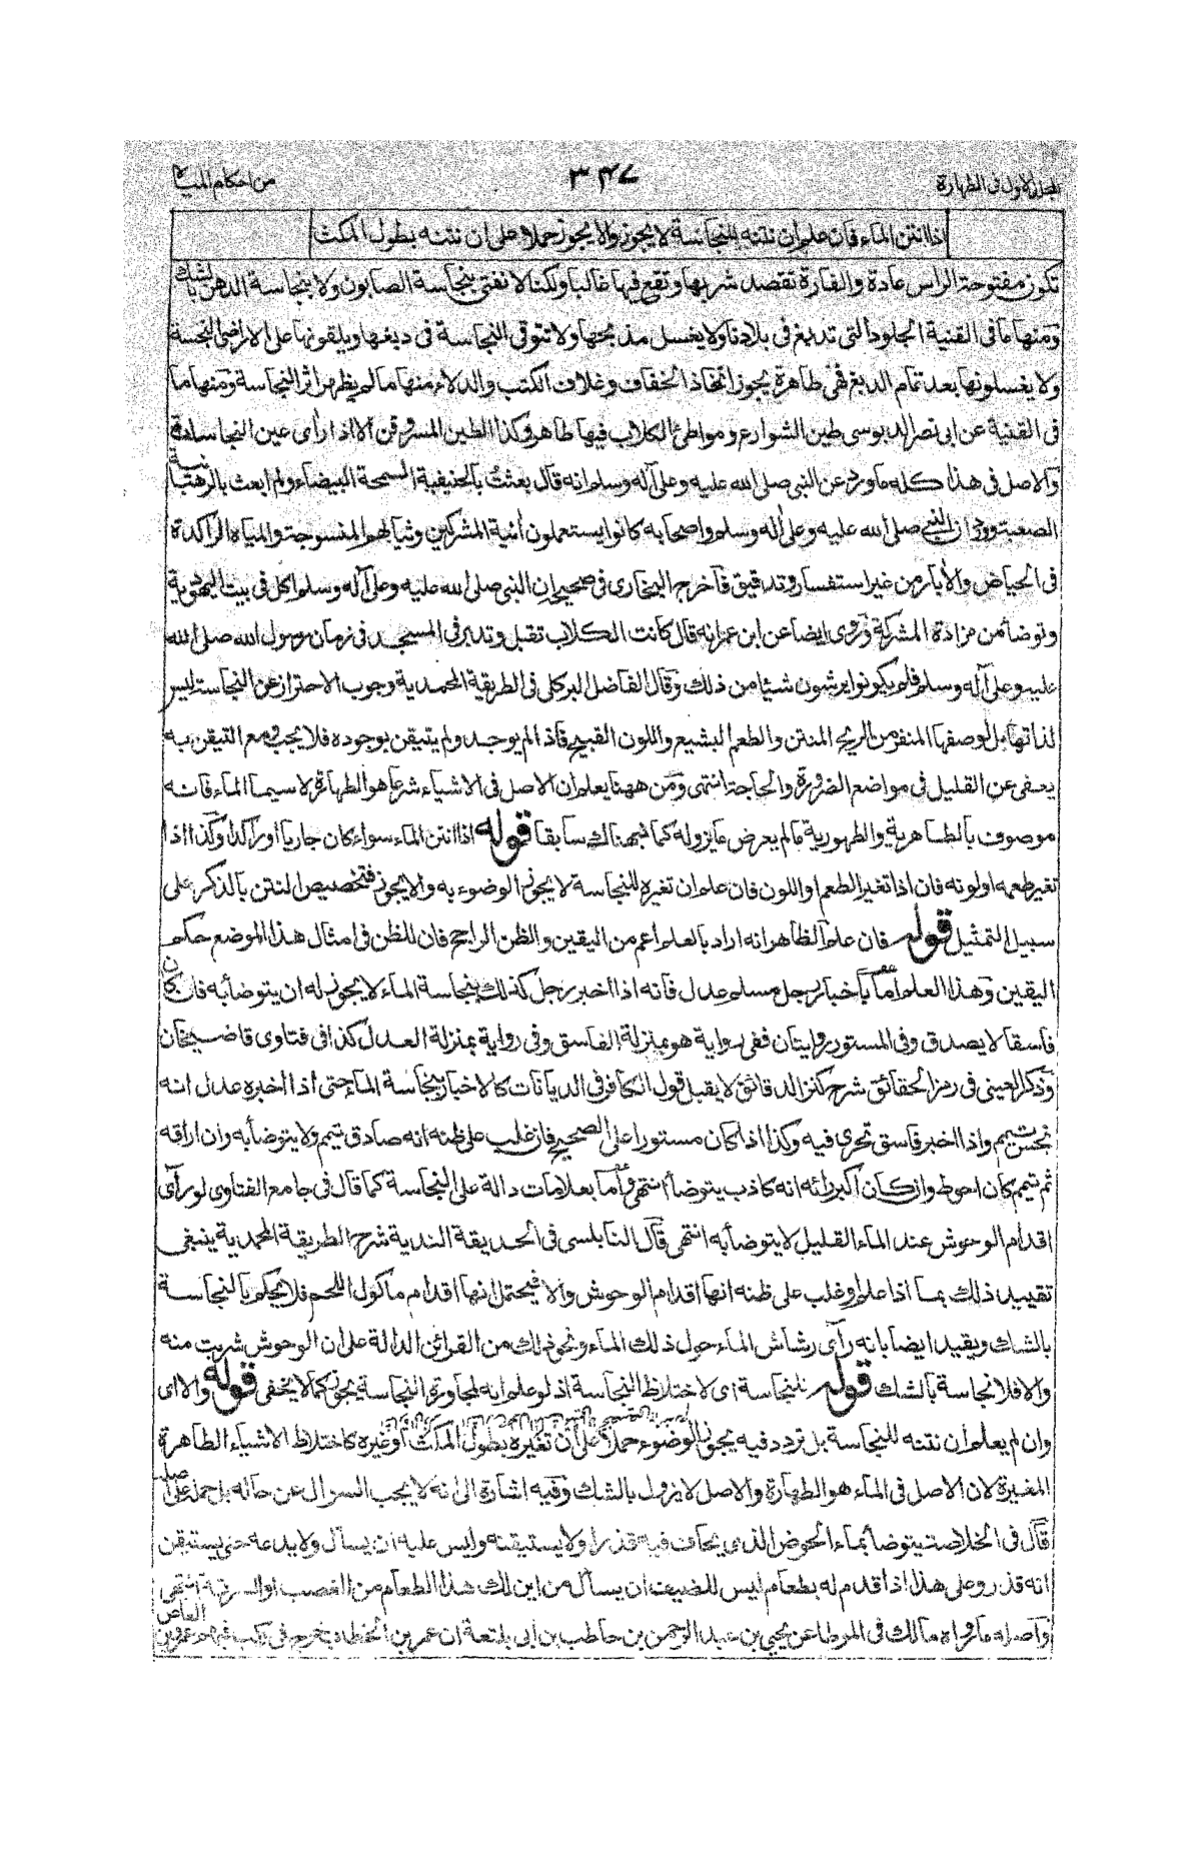 المجلد الاول فى الطهارة
٣٤٧
من احكام المياه
اذا انتن الماء فان علم ان نتنه للنجاسة لا يجوز والا يجوز حملا على ان نتنه بطول المكث
تكون مفتوحة الراس عادة والفارة تقصد شربها وتقع فيها غالبا ولكنا لا نفتى بنجاسة الصابون ولا بنجاسة الدهن بالشك
ومنها ما فى القنية الجلود التى تدبغ فى بلادنا ولا يغسل مذبحها ولا تتوقى النجاسة فى دبغها ويلقونها على الاراضى النجسة
ولا يغسلونها بعد تمام الدبغ فهى طاهرة يجوز اتخاذ الخفاف وغلاف الكتب والدلاء منها ما لم يظهر اثر النجاسة ومنها ما
فى القنية عن ابى نصر الدبوسى طين الشوارع ومواطئ الكلاب فيها طاهر وكذا الطين المسرقن الا اذا رأى عين النجاسة
والاصل فى هذا كله ما ورد عن النبى صلى الله عليه وعلى آله وسلم انه قال بعثت بالحنيفية السمحة البيضاء ولم ابعث بالرهبانية
الصعبة وورد ان النبى صلى الله عليه وعلى آله وسلم واصحابه كانوا يستعملون آنية المشركين وثيابهم المنسوجة والمياه الراكدة
فى الحياض والآبار من غير استفسار وتدقيق فاخرج البخارى فى صحيحه ان النبى صلى الله عليه وعلى آله وسلم اكل فى بيت اليهودية
وتوضأ من مزادة المشركة وروى ايضا عن ابن عمر انه قال كانت الكلاب تقبل وتدبر فى المسجد فى زمان رسول الله صلى الله
عليه وعلى آله وسلم فلم يكونوا يرشون شيئا من ذلك وقال الفاضل البركلى فى الطريقة المحمدية وجوب الاحتراز عن النجاسة ليس
لذاتها بل لوصفها المنفر من الريح المنتن والطعم البشيع واللون القبيح فاذا لم يوجد ولم يتيقن بوجوده فلا يجب ومع التيقن به
يعفى عن القليل فى مواضع الضرورة والحاجة انتهى ومن ههنا يعلم ان الاصل فى الاشياء شرعا هو الطهارة لا سيما الماء فانه
موصوف بالطاهرية والطهورية ما لم يعرض ما يزوله كما نبهناك سابقا قوله اذا انتن الماء سواء كان جاريا او راكدا وكذا اذا
تغير طعمه او لونه فان اذا تغير الطعم او اللون فان علم ان تغيره للنجاسة لا يجوز الوضوء به والا يجوز فتخصيص النتن بالذكر على
سبيل التمثيل قوله فان علم الظاهر انه اراد بالعلم اعم من اليقين والظن الراجح فان للظن فى امثال هذا الموضع حكم
اليقين وهذا العلم اما بأخبار رجل مسلم عدل فانه اذا اخبر رجل كذلك بنجاسة الماء لا يجوز له ان يتوضأ به فان كان
فاسقا لا يصدق وفى المستور روايتان ففى رواية هو بمنزلة الفاسق وفى رواية بمنزلة العدل كذا فى فتاوى قاضيخان
وذكر العينى فى رمز الحقائق شرح كنز الدقائق لا يقبل قول الكافر فى الديانات كالاخبار بنجاسة الماء حتى اذا اخبره عدل انه
نجس تيمم واذا اخبر فاسق تحرى فيه وكذا اذا كان مستورا على الصحيح فان غلب على ظنه انه صادق تيمم ولا يتوضأ به وان اراقه
ثم تيمم كان احوط وان كان اكبر رائه انه كاذب يتوضأ انتهى واما بعلامات دالة على النجاسة كما قال فى جامع الفتاوى لو رآى
اقدام الوحوش عند الماء القليل لا يتوضأ به انتهى قال النابلسى فى الحديقة الندية شرح الطريقة المحمدية ينبغى
تقييد ذلك بما اذا علم او غلب على ظنه انها اقدام الوحوش والا فيحتمل انها اقدام ماكول اللحم فلا يحكم بالنجاسة
بالشك ويقيد ايضا بانه رآى رشاش الماء حول ذلك الماء ونحو ذلك من القرائن الدالة على ان الوحوش شربت منه
والا فلا نجاسة بالشك قوله للنجاسة اى لاختلاط النجاسة اذ لو علم انه لمجاورة النجاسة يجوز كما لا يخفى قوله والا اى
وان لم يعلم ان نتنه للنجاسة بل تردد فيه يجوز الوضوء حملا على ان تغيره بطول المكث او غيره كاختلاط الاشياء الطاهرة
المغيرة لان الاصل فى الماء هو الطهارة والاصل لا يزول بالشك وفيه اشارة الى انه لا يجب السوال عن حاله بل حمله على اصله
قال فى الخلاصة يتوضأ بماء الحوض الذى يخاف فيه قذرا ولا يستيقنه وليس عليه ان يسأل ولا يدعه حتى يستيقن
انه قذر وعلى هذا اذا قدم له بطعام ليس للضيف ان يسأل من اين لك هذا الطعام من الغصب او السرقة انتهى
واصله ما رواه مالك فى الموطا عن يحيى بن عبد الرحمن بن حاطب بن ابى بلتعة ان عمر بن الخطاب خرج فى ركب فيهم عمرو بن العاص